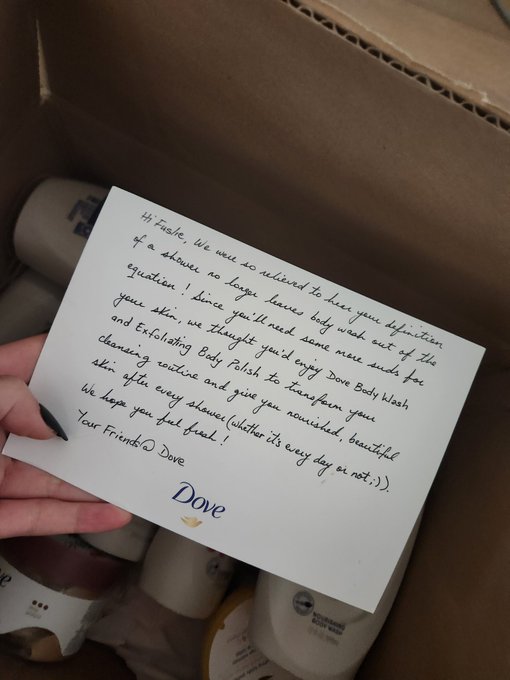 Hi Fuslie, We were so relieved to hear your definition
of a shower no longer leaves body wash out of the
equation! Since you'll need some more suds for
your skin, we thought you'd enjoy Dove Body Wash
and Exfoliating Body Polish to transform your
cleansing routine and give you nourished, beautiful
skin after every shower (whether it's every day or not ;)).
We hope you feel fresh!
Your Friends @ Dove
Dove
NOURISHING
BODY WASH